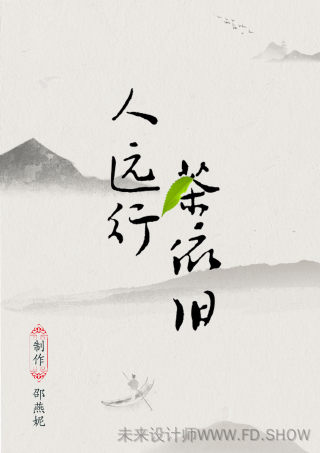 人远行
茶依旧
制作
邵燕妮
未来设计师WWW.FD.SHOW